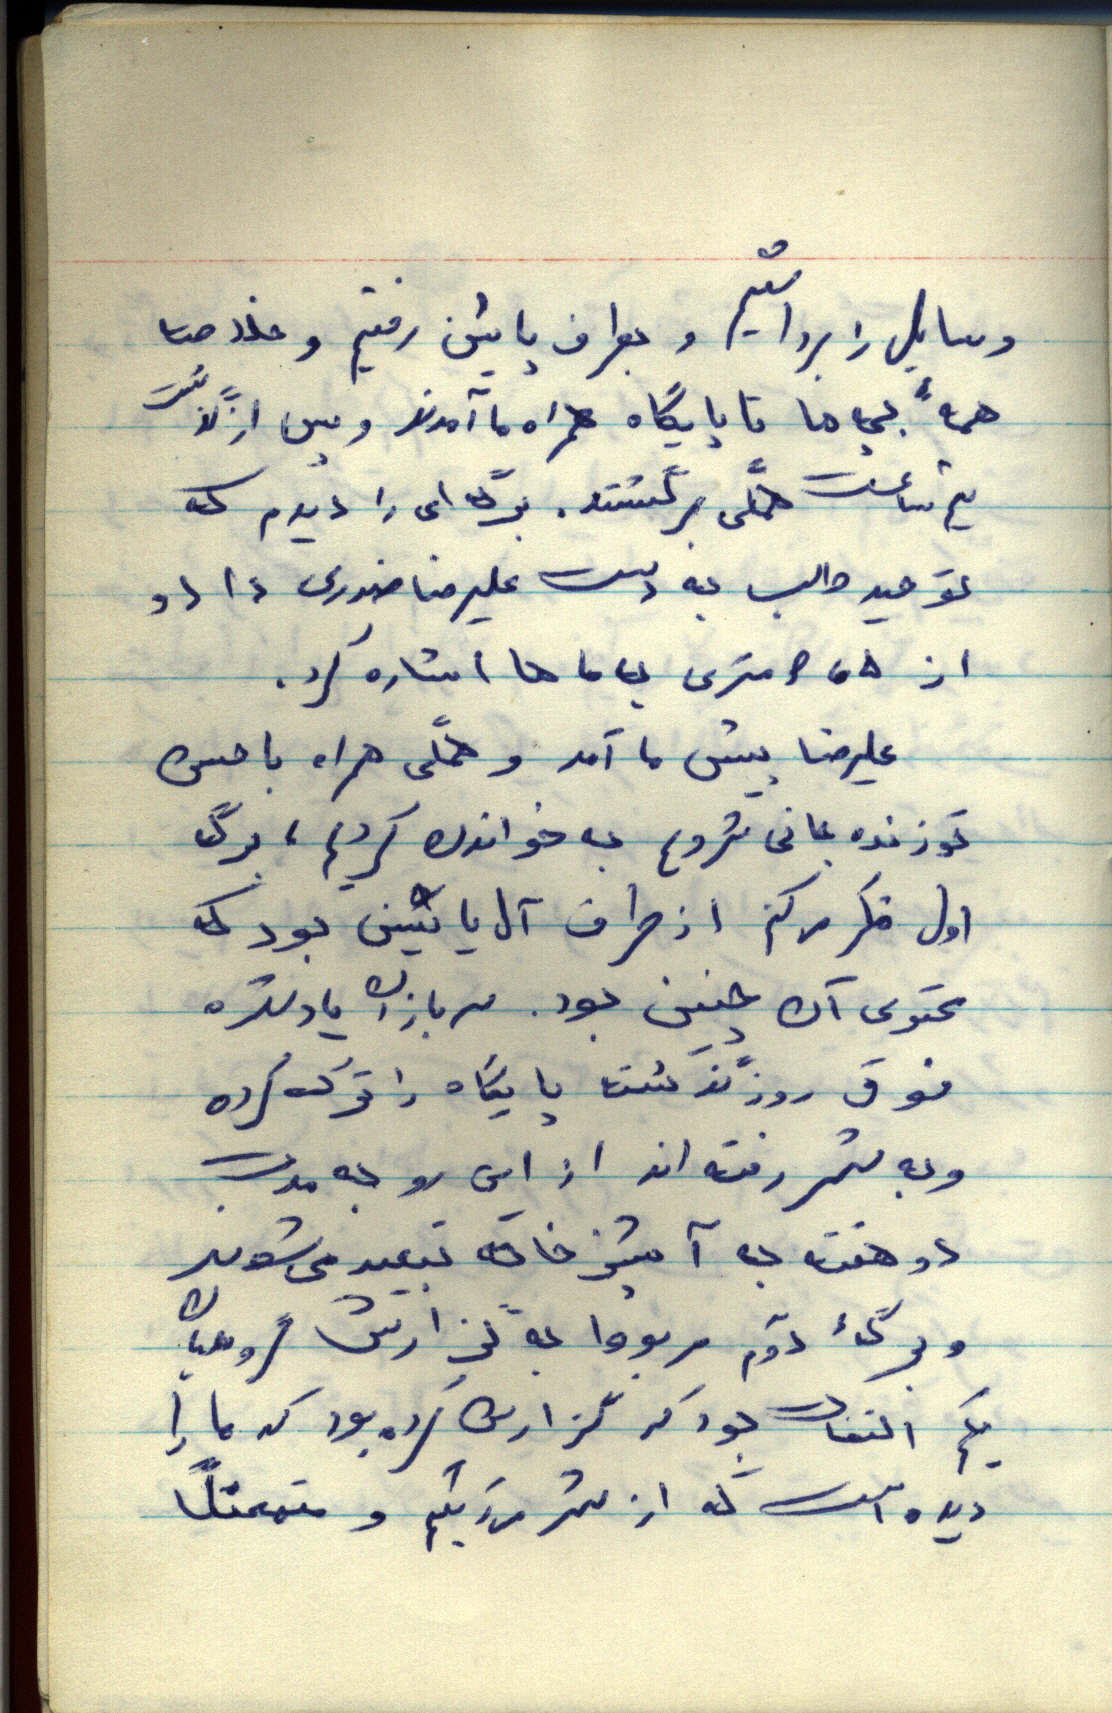 وسایل را برداشتیم و بطرف پایین رفتیم و خلاصتا
همهٔ بچه ها تا پایگاه همراه ما آمدند و پس از گذشت
نیم ساعت همگی برگشتند. برگه ای را دیدم که
توحید طالب به دست علیرضا صفدری داد و
از ۵۰ متری به ما ها اشاره کرد.
علیرضا پیش ما آمد و همگی همراه با حسن
توزنده جانی شروع به خواندن کردیم، برگ
اول فکر میکنم از طرف آل یاسین بود که
محتوی آن چنین بود. سربازان یاد شده
فوق روز گذشته پایگاه را ترک کرده
و به شهر رفته اند از این رو به مدت
دو هفته به آشپزخانه تبعید می شوند
و برگهٔ دوم مربوط به گزارش گروهبان
یکم بود که گزارش کرده بود که ما را
دیده است که از شهر می آئیم و